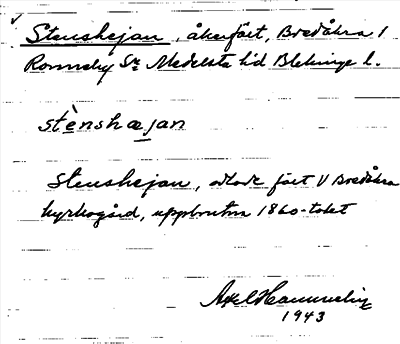 Stenshejan, åkerfält, Bredåkra 1
Ronneby Sn Medelsta hd Blekinge l.
stènshæjan
Stenshejan, odlat fält V Bredåkra
kyrkogård, uppbruten 1860-talet
Axel Hammeling
1943